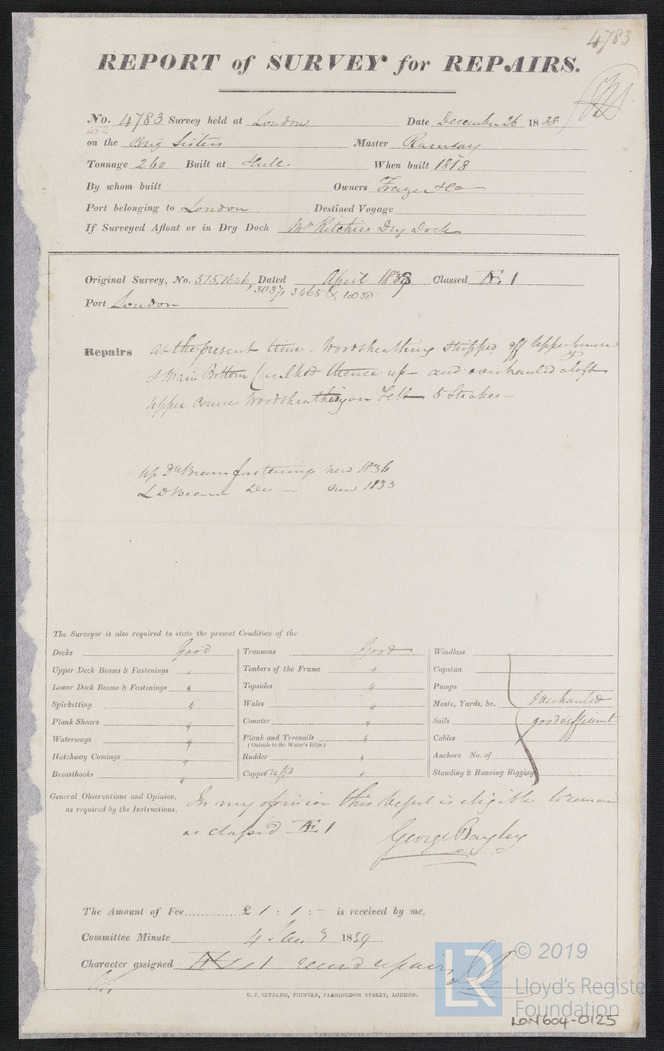 4783
REPORT of SURVEY for REPAIRS.
No. 4783 Survey held at London Date December 26 1838
on the Brig Sisters Master Ramsay
Tonnage 260 Built at Hull When built 1818
By whom built Owners Frazer & Co
Port belonging to London Destined Voyage
If Surveyed Afloat or in Dry Dock Mr Ritchies Dry Dock
Original Survey, No. Dated April Classed Æ 1
Port London
Repairs At the present time, Woodsheathing stripped off Upper
& Main Bottom Caulked thence up - and overhauled aloft
Upper Course Woodsheathing on Felt 6 Strakes -
Up Dk Beam fastening new 1836
L D Beam Do - new 1833
The Surveyor is also required to state the present Condition of the
Decks Good Transoms Good Windlass
Upper Deck Beams & Fastenings " Timbers of the Frame " Capstan
Lower Deck Beams & Fastenings " Topsides " Pumps
Spirketting " Wales " Masts, Yards, &c. Overhauled
Plank Shears " Counter " Sails good & efficient
Waterways " Plank and Treenails " Cables
(Outside to the Water's Edge)
Hatchway Comings " Rudder " Anchors No. of
Breasthooks " Copper Standing & Running Rigging
General Observations and Opinion, In my opinion this Vessel is eligible to remain
as required by the Instructions, as classed Æ 1
George Bayley
The Amount of Fee............ £ 1 : 1 : - is received by me,
Committee Minute 4 Jany 1839
Character assigned Æ 1 record repairs
G. F. SEYFANG, PRINTER, FARRINGDON STREET, LONDON.
LR © 2019
Lloyd's Register
Foundation
LON604-0125